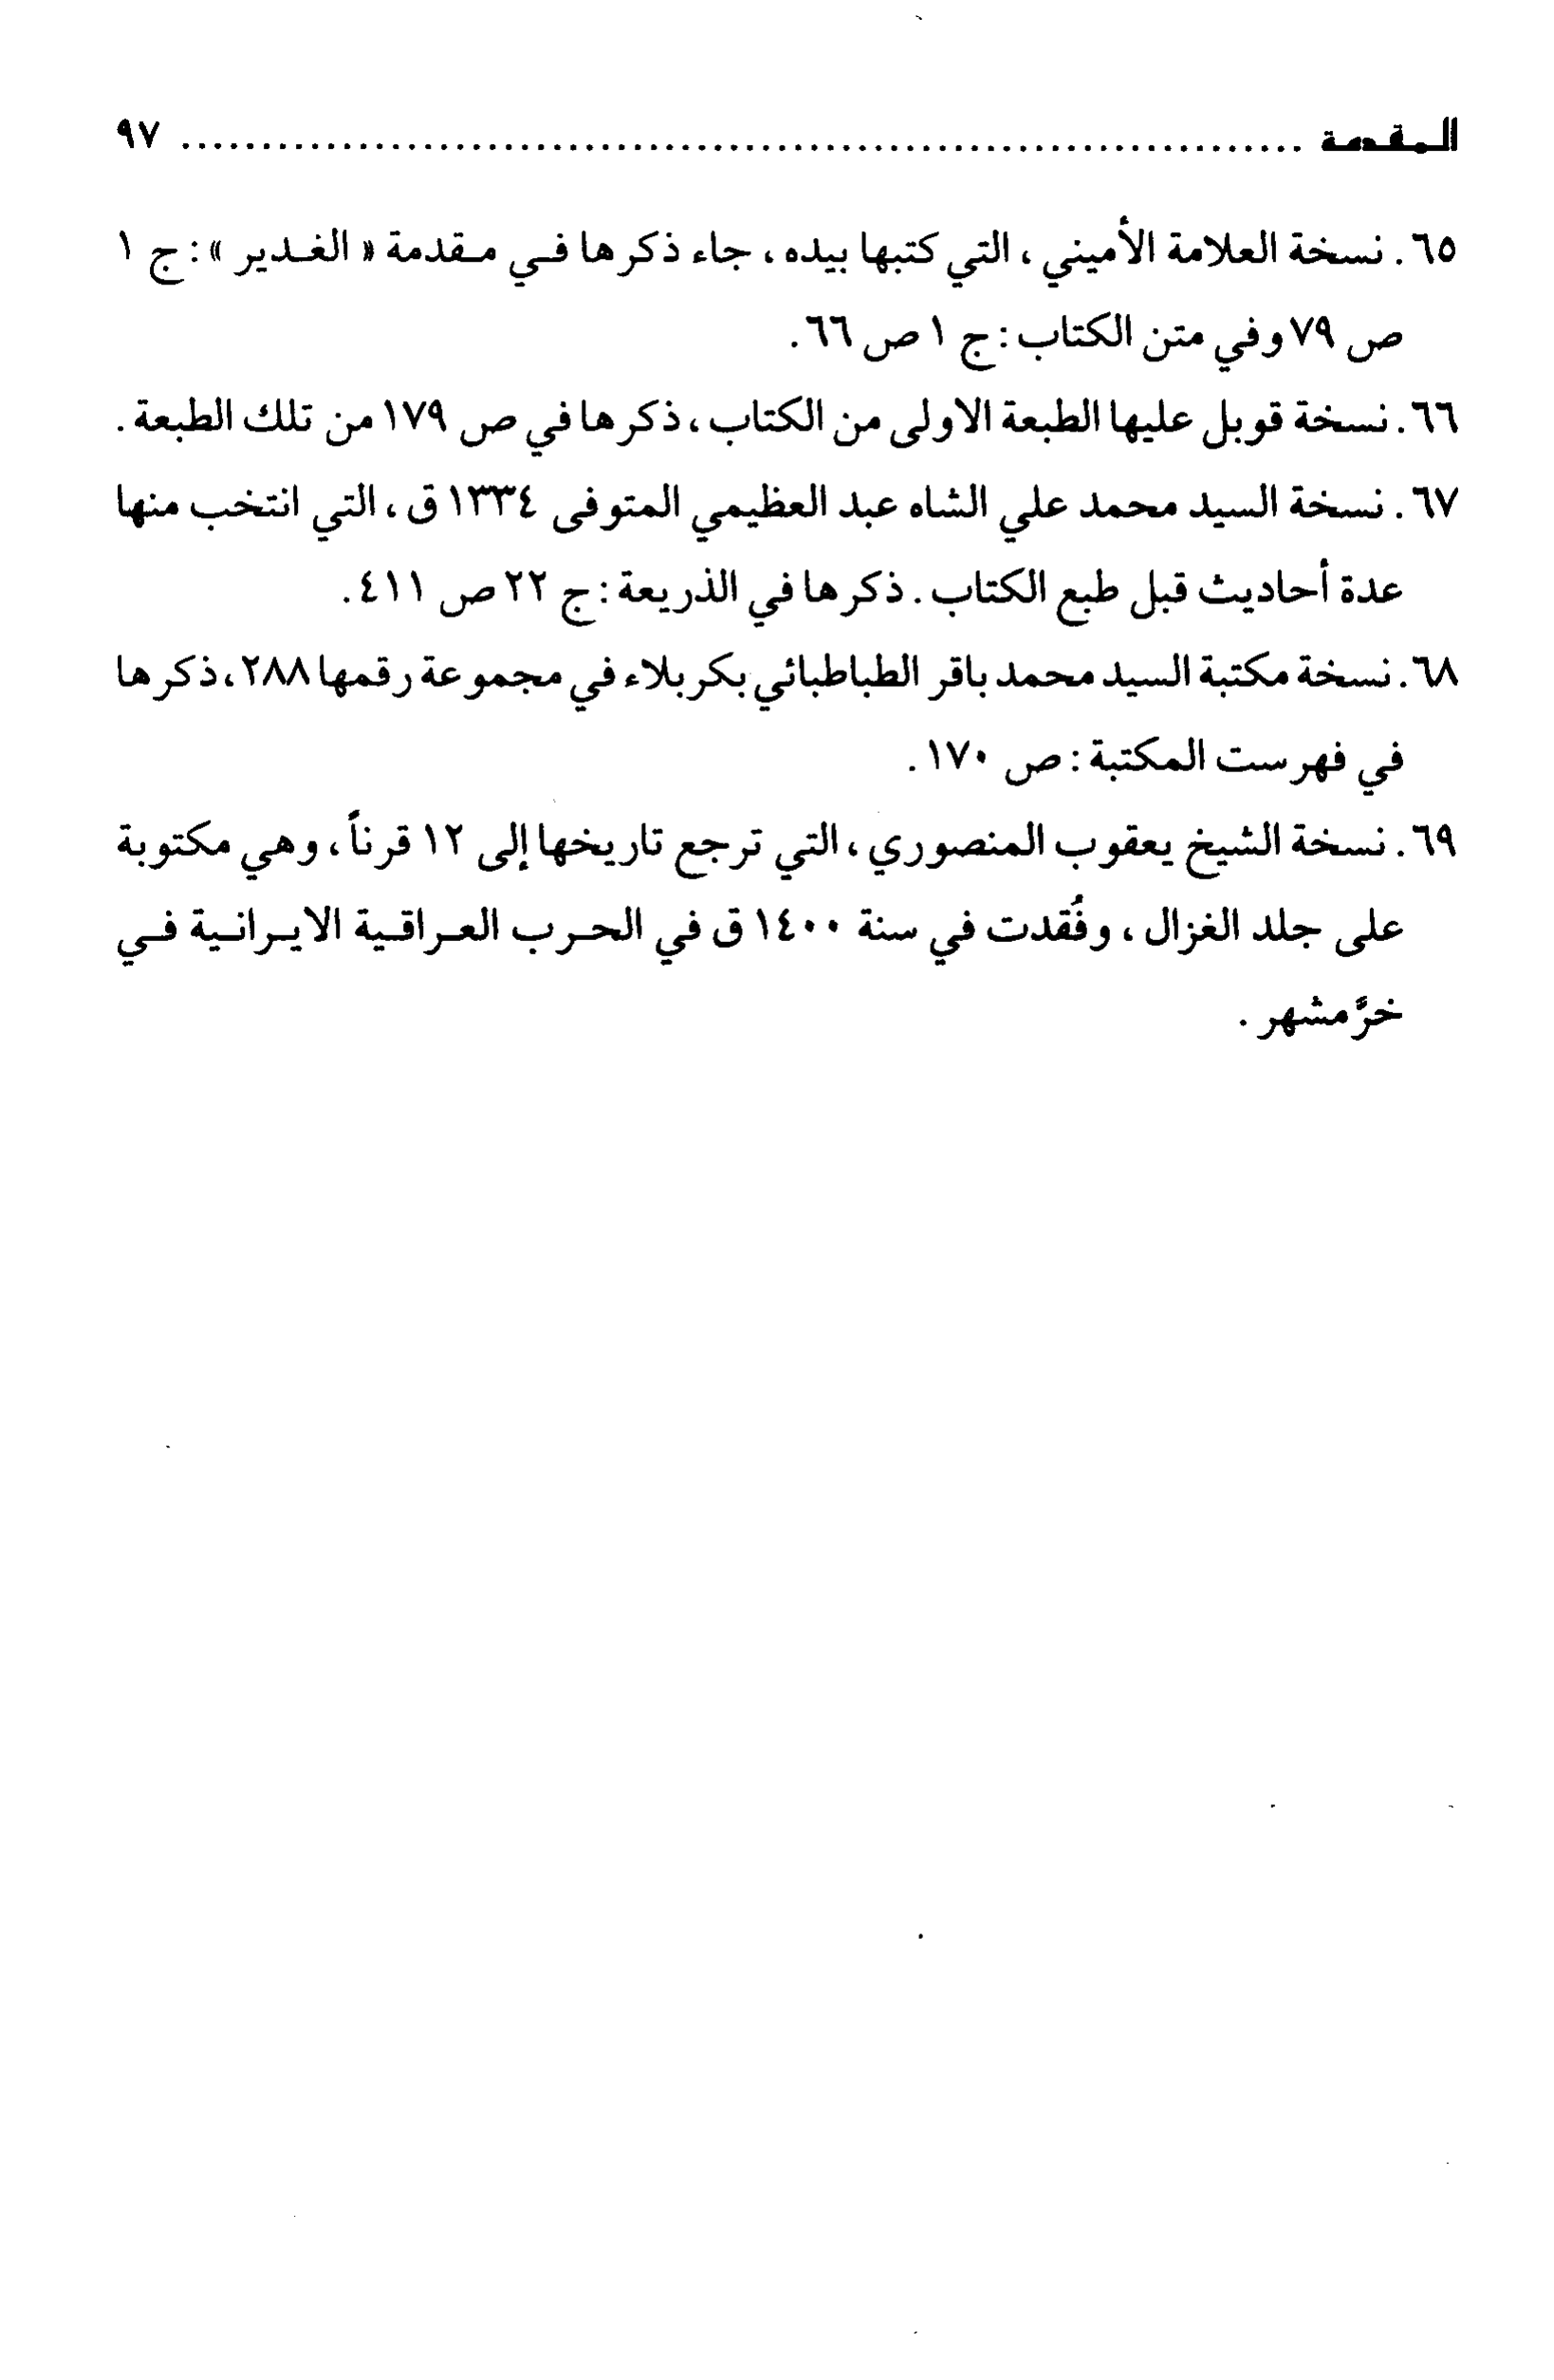 المقدمة ........................................................................ ٩٧
٦٥. نسخة العلامة الأميني ، التي كتبها بيده ، جاء ذكرها في مقدمة « الغدير » : ج ١
ص ٧٩ وفي متن الكتاب : ج ١ ص ٦٦.
٦٦. نسخة قوبل عليها الطبعة الاولى من الكتاب ، ذكرها في ص ١٧٩ من تلك الطبعة .
٦٧. نسخة السيد محمد علي الشاه عبد العظيمي المتوفى ١٣٣٤ ق ، التي انتخب منها
عدة أحاديث قبل طبع الكتاب . ذكرها في الذريعة : ج ٢٢ ص ٤١١.
٦٨. نسخة مكتبة السيد محمد باقر الطباطبائي بكربلاء في مجموعة رقمها ٢٨٨، ذكرها
في فهرست المكتبة : ص ١٧٠.
٦٩. نسخة الشيخ يعقوب المنصوري ، التي ترجع تاريخها إلى ١٢ قرناً ، وهي مكتوبة
على جلد الغزال ، وفُقدت في سنة ١٤٠٠ ق في الحرب العراقية الايرانية في
خرّمشهر .